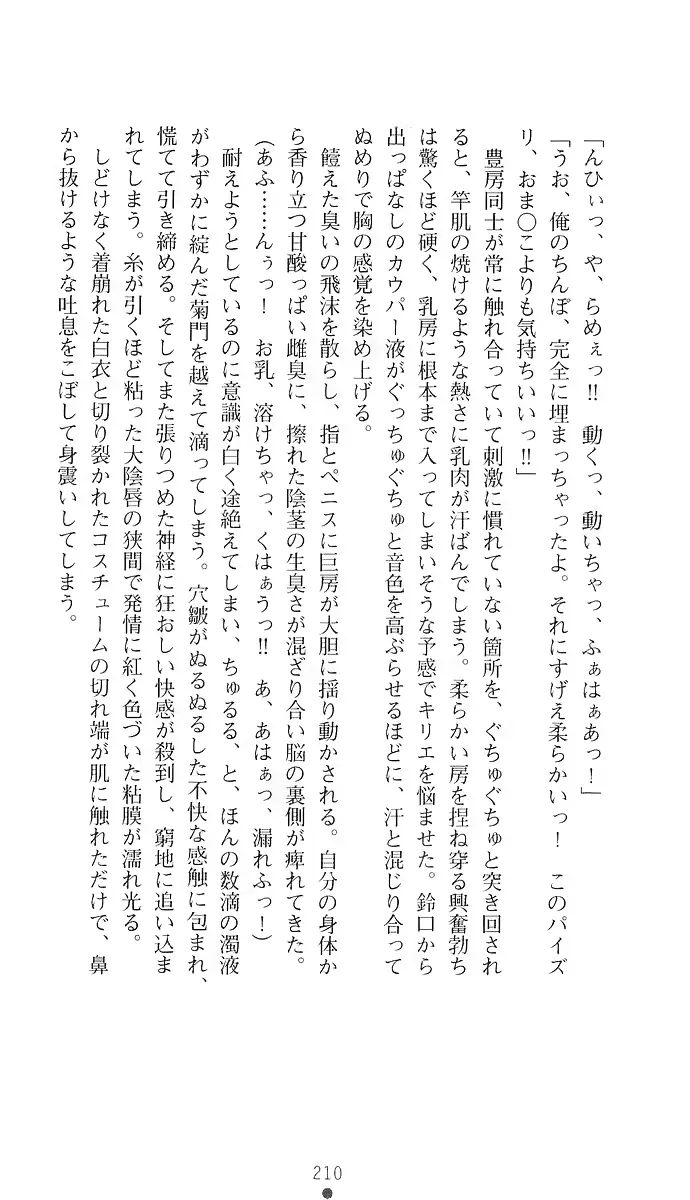 「んひぃっ、や、らめぇっ!! 動くっ、動いちゃっ、ふぁはぁあっ！」
「うお、俺のちんぽ、完全に埋まっちゃったよ。それにすげえ柔らかいっ！ このパイズ
リ、おま〇こよりも気持ちいいっ!!」
豊房同士が常に触れ合っていて刺激に慣れていない箇所を、ぐちゅぐちゅと突き回され
ると、竿肌の焼けるような熱さに乳肉が汗ばんでしまう。柔らかい房を捏ね穿る興奮勃ち
は驚くほど硬く、乳房に根本まで入ってしまいそうな予感でキリエを悩ませた。鈴口から
出っぱなしのカウパー液がぐっちゅぐちゅと音色を高ぶらせるほどに、汗と混じり合って
ぬめりで胸の感覚を染め上げる。
饐えた臭いの飛沫を散らし、指とペニスに巨房が大胆に揺り動かされる。自分の身体か
ら香り立つ甘酸っぱい雌臭に、擦れた陰茎の生臭さが混ざり合い脳の裏側が痺れてきた。
(あふ……んぅっ！ お乳、溶けちゃっ、くはぁうっ!! あ、あはぁっ、漏れふっ！)
耐えようとしているのに意識が白く途絶えてしまい、ちゅるる、と、ほんの数滴の濁液
がわずかに綻んだ菊門を越えて滴ってしまう。穴皺がぬるぬるした不快な感触に包まれ、
慌てて引き締める。そしてまた張りつめた神経に狂おしい快感が殺到し、窮地に追い込ま
れてしまう。糸が引くほど粘った大陰唇の狭間で発情に紅く色づいた粘膜が濡れ光る。
しどけなく着崩れた白衣と切り裂かれたコスチュームの切れ端が肌に触れただけで、鼻
から抜けるような吐息をこぼして身震いしてしまう。
210